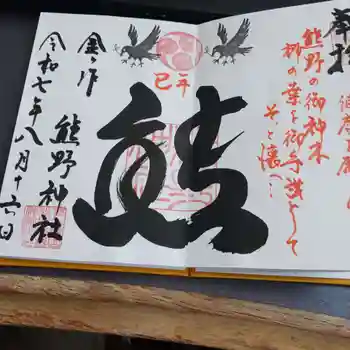 奉拝
熊野の御神木
梛の葉を御守護として
そと懐へ…
巳年
金ヶ作
熊野神社
令和七年八月十六日